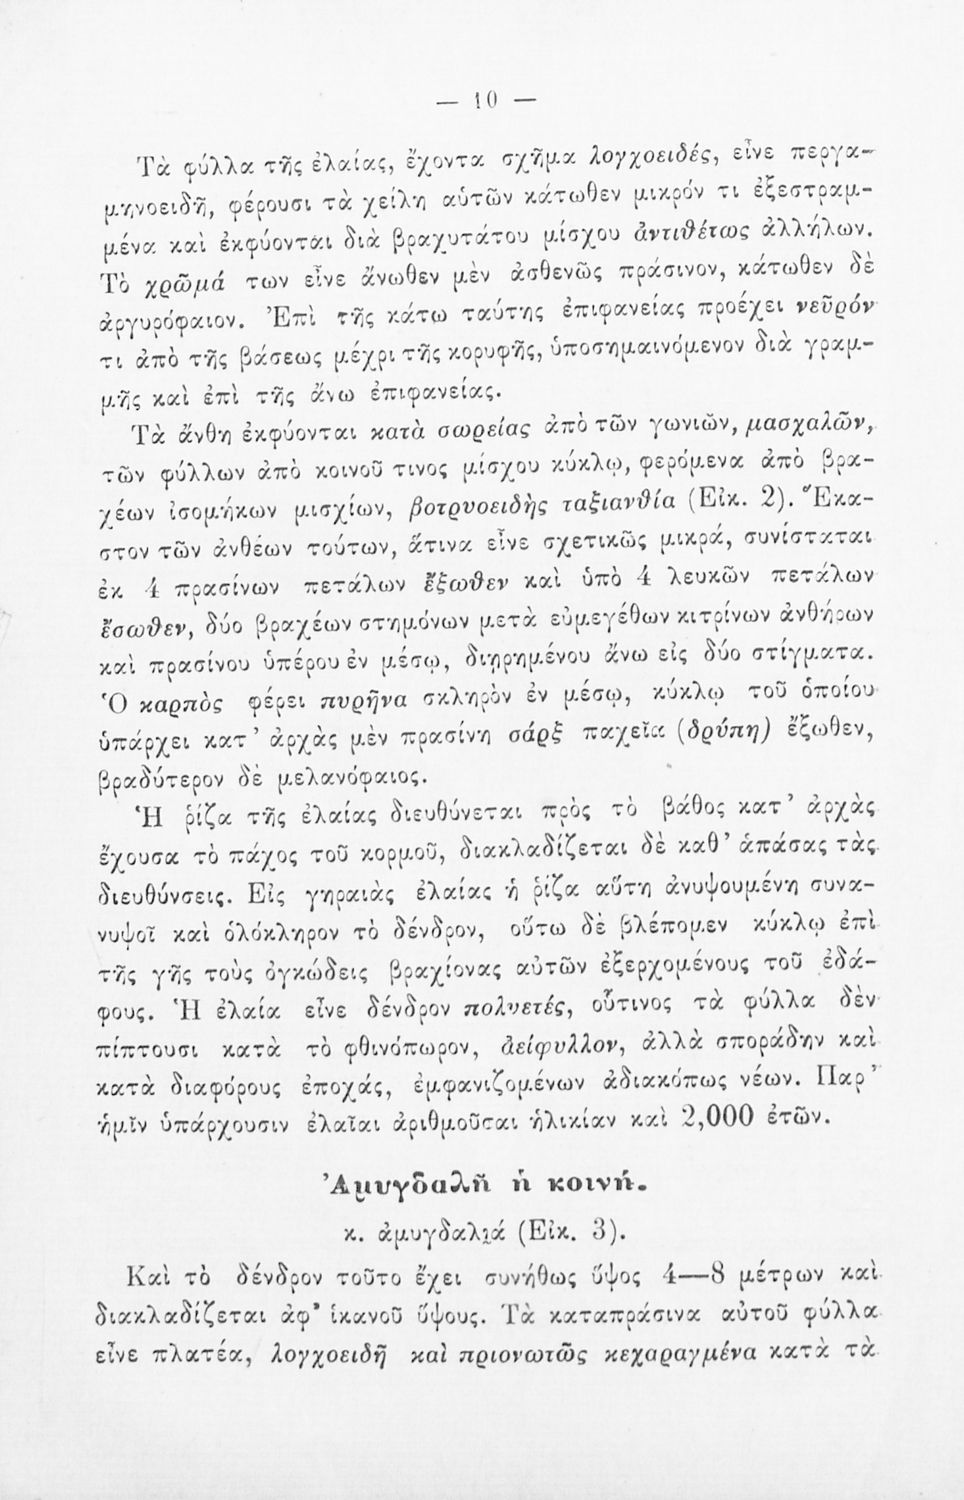 — 10 —
Τὰ φύλλα τῆς ἐλαίας, ἔχοντα σχῆμα λογχοειδές, εἶνε περγα-
μηνοειδῆ, φέρουσι τὰ χείλη αὐτῶν κάτωθεν μικρόν τι ἐξεστραμ-
μένα καὶ ἐκφύονται διὰ βραχυτάτου μίσχου ἀντιθέτως ἀλλήλων.
Τὸ χρῶμά των εἶνε ἄνωθεν μὲν ἀσθενῶς πράσινον, κάτωθεν δὲ
ἀργυρόφαιον. Ἐπὶ τῆς κάτω ταύτης ἐπιφανείας προέχει νεῦρόν
τι ἀπὸ τῆς βάσεως μέχρι τῆς κορυφῆς, ὑποσημαινόμενον διὰ γραμ-
μῆς καὶ ἐπὶ τῆς ἄνω ἐπιφανείας.
Τὰ ἄνθη ἐκφύονται κατὰ σωρείας ἀπὸ τῶν γωνιῶν, μασχαλῶν,
τῶν φύλλων ἀπὸ κοινοῦ τινος μίσχου κύκλῳ, φερόμενα ἀπὸ βρα-
χέων ἰσομήκων μισχίων, βοτρυοειδὴς ταξιανθία (Εἰκ. 2). Ἕκα-
στον τῶν ἀνθέων τούτων, ἅτινα εἶνε σχετικῶς μικρά, συνίσταται
ἐκ 4 πρασίνων πετάλων ἔξωθεν καὶ ὑπὸ 4 λευκῶν πετάλων
ἔσωθεν, δύο βραχέων στημόνων μετὰ εὐμεγέθων κιτρίνων ἀνθήρων
καὶ πρασίνου ὑπέρου ἐν μέσῳ, διῃρημένου ἄνω εἰς δύο στίγματα.
Ὁ καρπὸς φέρει πυρῆνα σκληρὸν ἐν μέσῳ, κύκλῳ τοῦ ὁποίου
ὑπάρχει κατ’ ἀρχὰς μὲν πρασίνη σάρξ παχεῖα (δρύπη) ἔξωθεν,
βραδύτερον δὲ μελανόφαιος.
Ἡ ῥίζα τῆς ἐλαίας διευθύνεται πρὸς τὸ βάθος κατ’ ἀρχὰς
ἔχουσα τὸ πάχος τοῦ κορμοῦ, διακλαδίζεται δὲ καθ’ ἁπάσας τὰς
διευθύνσεις. Εἰς γηραιὰς ἐλαίας ἡ ῥίζα αὕτη ἀνυψουμένη συνα-
νυψοῖ καὶ ὁλόκληρον τὸ δένδρον, οὕτω δὲ βλέπομεν κύκλῳ ἐπὶ
τῆς γῆς τοὺς ὀγκώδεις βραχίονας αὐτῶν ἐξερχομένους τοῦ ἐδά-
φους. Ἡ ἐλαία εἶνε δένδρον πολυετές, οὗτινος τὰ φύλλα δὲν
πίπτουσι κατὰ τὸ φθινόπωρον, ἀείφυλλον, ἀλλὰ σποράδην καὶ
κατὰ διαφόρους ἐποχάς, ἐμφανιζομένων ἀδιακόπως νέων. Παρ’
ἡμῖν ὑπάρχουσιν ἐλαῖαι ἀριθμοῦσαι ἡλικίαν καὶ 2,000 ἐτῶν.
Ἀμυγδαλῆ ἡ κοινή.
κ. ἀμυγδαλιά (Εἰκ. 3).
Καὶ τὸ δένδρον τοῦτο ἔχει συνήθως ὕψος 4—8 μέτρων καὶ
διακλαδίζεται ἀφ’ ἱκανοῦ ὕψους. Τὰ καταπράσινα αὐτοῦ φύλλα
εἶνε πλατέα, λογχοειδῆ καὶ πριονωτῶς κεχαραγμένα κατὰ τὰ